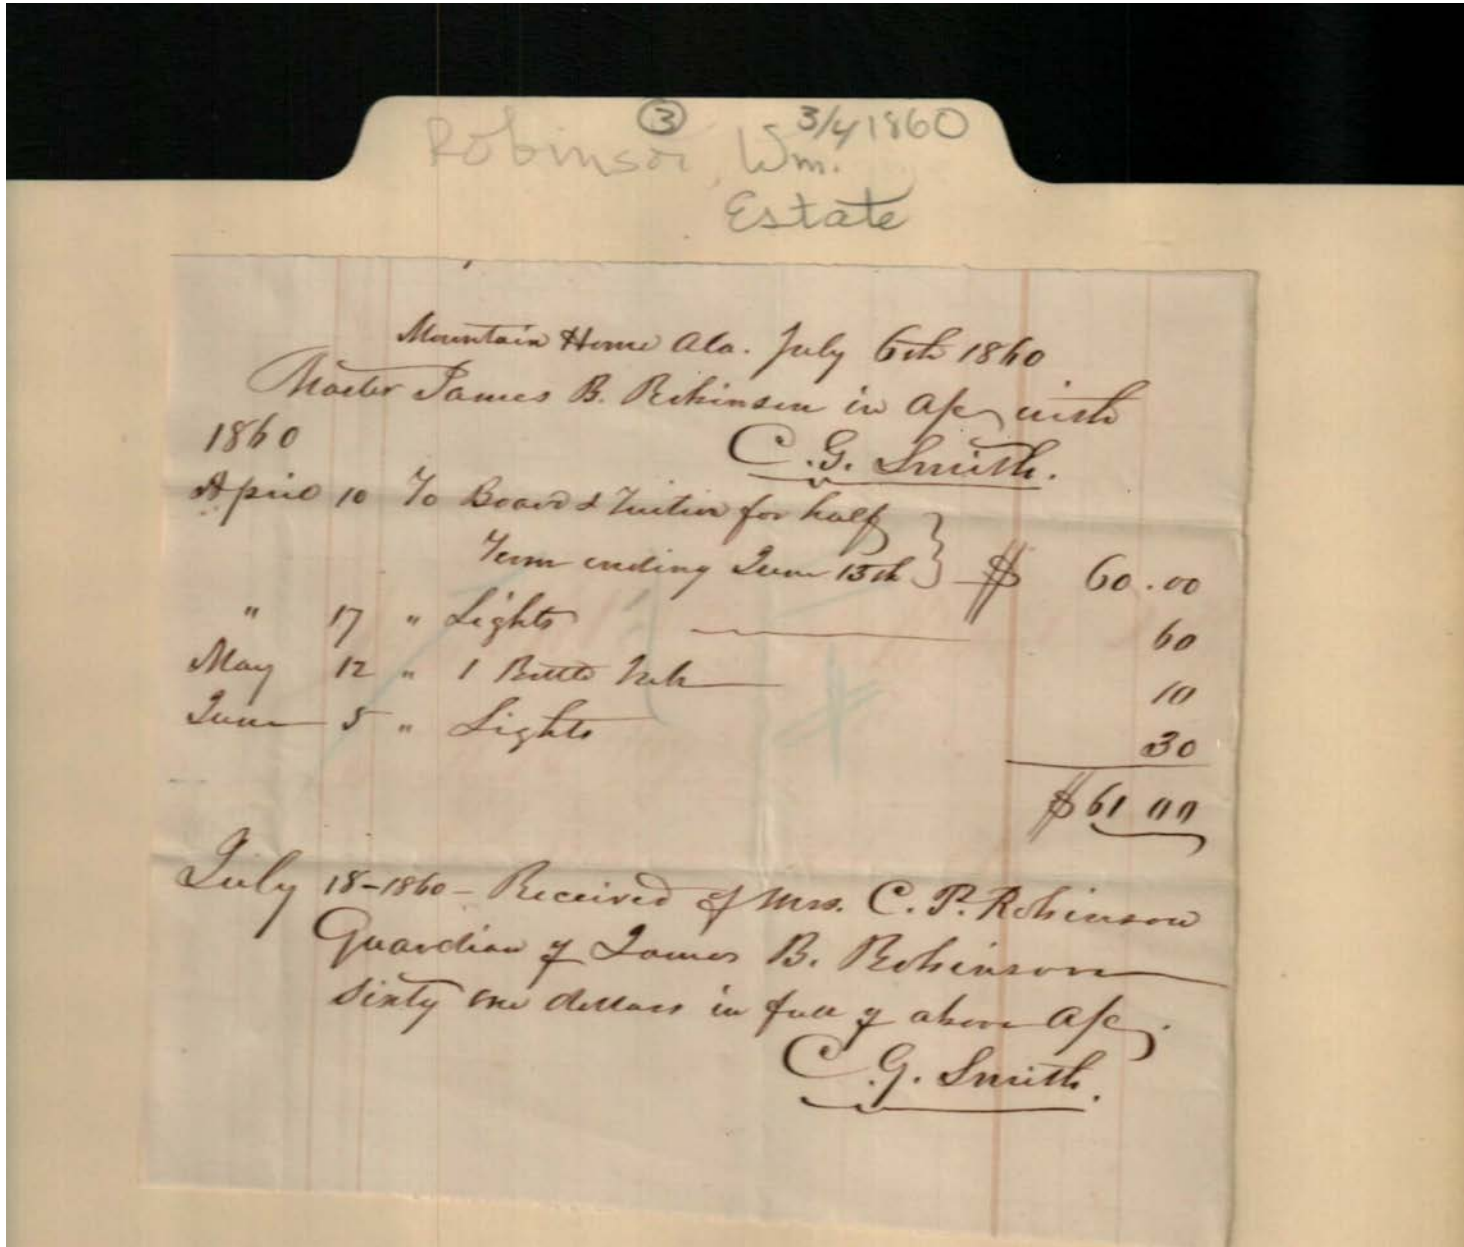 ③ 3/4 1860
Robinson, Wm.
Estate
Mountain Home Ala. July 6th 1860
Master James B. Robinson in a/c with
1860 C. G. Smith.
April 10 To Board & Tuition for half
Term ending June 15th } $ 60.00
" 17 " Lights 60
May 12 " 1 Bottle Ink 10
June 5 " Lights 30
$ 61 00
July 18-1860- Received of Mrs. C. P. Robinson
Guardian of James B. Robinson
Sixty one dollars in full of above a/c.
C. G. Smith.